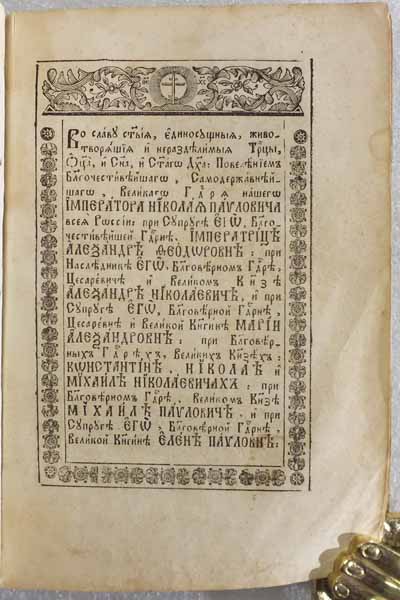 Во сла́вꙋ ст҃ы́ѧ, є҆диносꙋ́щныѧ, живо-
творѧ́щїѧ и҆ нераздѣ́лимыѧ Трⷪ҇цы,
Ѻ҆ц҃а̀, и҆ Сн҃а, и҆ Ст҃а́гѡ Дх҃а: Повелѣ́нїемъ
Благочести́вѣйшагѡ, Самодержа́внѣй-
шагѡ, Вели́кагѡ Гдⷭ҇рѧ на́шегѡ
І҆МПЕРА́ТОРА НІКОЛА́Ѧ ПА́ѴЛОВИЧА
всеѧ̀ Рѡссі́и: при Сꙋпрꙋ́гѣ Є҆ГѠ̀, Благо-
чести́вѣйшей Гдⷭ҇рнѣ, І҆МПЕРАТРІ́ЦѢ
А҆ЛЕѮА́НДРѢ ѲЕО́ДѠРОВНѢ: при
Наслѣ́дникѣ Є҆ГѠ̀, Благовѣ́рномъ Гдⷭ҇рѣ,
Цесаре́вичѣ и҆ Вели́комъ Кн҃зѣ
А҆ЛЕѮА́НДРѢ НІКОЛА́ЕВИЧѢ, и҆ при
Сꙋпрꙋ́гѣ Є҆ГѠ̀, Благовѣ́рной Гдⷭ҇рнѣ,
Цесаре́внѣ и҆ Вели́кой Кн҃ги́нѣ МАРІ́И
А҆ЛЕѮА́НДРОВНѢ: при Благовѣ́р-
ныхъ Гдⷭ҇рѣхъ, Вели́кихъ Кн҃зѣхъ:
КѠНСТАНТІ́НѢ, НІКОЛА́Ѣ и҆
МІХАИ́ЛѢ НІКОЛА́ЕВИЧАХЪ: при
Благовѣ́рномъ Гдⷭ҇рѣ, Вели́комъ Кн҃зѣ
МІХАИ́ЛѢ ПА́ѴЛОВИЧѢ, и҆ при
Сꙋпрꙋ́гѣ Є҆ГѠ̀, Благовѣ́рной Гдⷭ҇рнѣ,
Вели́кой Кн҃ги́нѣ Є҆ЛЕ́НѢ ПА́ѴЛОВНѢ: